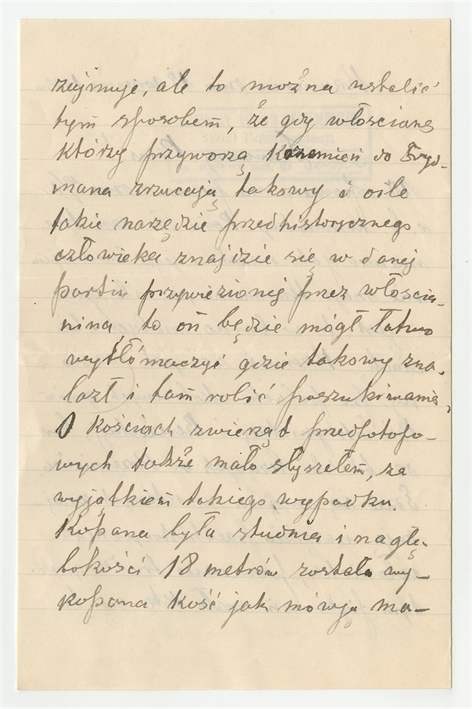 zujmuje, ale to można ustalić
tym sposobem, że gdy włościane
którzy przywożą kamień do Fryd-
mana zrzucają takowy i o ile
takie narzędzie przedhistorycznego
człowieka znajdzie się w danej
partii przywiezionej przez włościa-
nina to on będzie mógł łatwo
wytłómaczyć gdzie takowy zna-
lazł i tam robić poszukiwania.
O kościach zwierząt przedpotopo-
wych także mało słyszałem, za
wyjątkiem takiego wypadku.
Kopana była studnia i na głę-
bokości 18 metrów została wy-
kopana kość jak mówją ma-